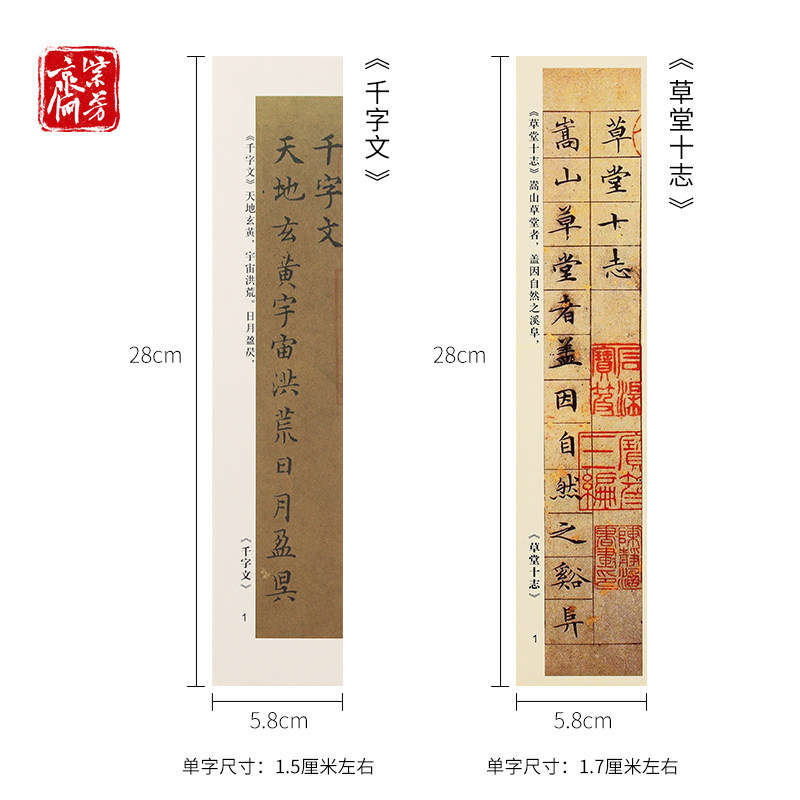 紫芳斋
《千字文》
千字文
天地玄黄宇宙洪荒日月盈昃
《千字文》天地玄黄,宇宙洪荒。日月盈昃,
《千字文》
1
28cm
5.8cm
单字尺寸:1.5厘米左右
《草堂十志》
草堂十志
嵩山草堂者盖因自然之谿阜
《草堂十志》嵩山草堂者,盖因自然之溪阜,
《草堂十志》
1
28cm
5.8cm
单字尺寸:1.7厘米左右